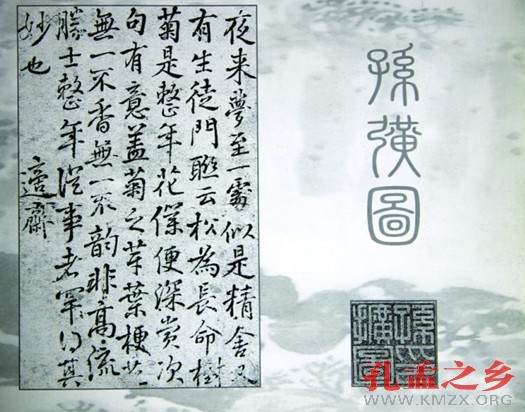 孫擴圖
夜来夢至一處似是精舍又
有生徒門聯云松為長命樹
菊是整年花僕便深賞次
句有意蓋菊之芽葉梗花
無一不香無一不韵非高流
勝士整年從事者罕得其
妙也
適齋
孔孟之乡
WWW.KMZX.ORG